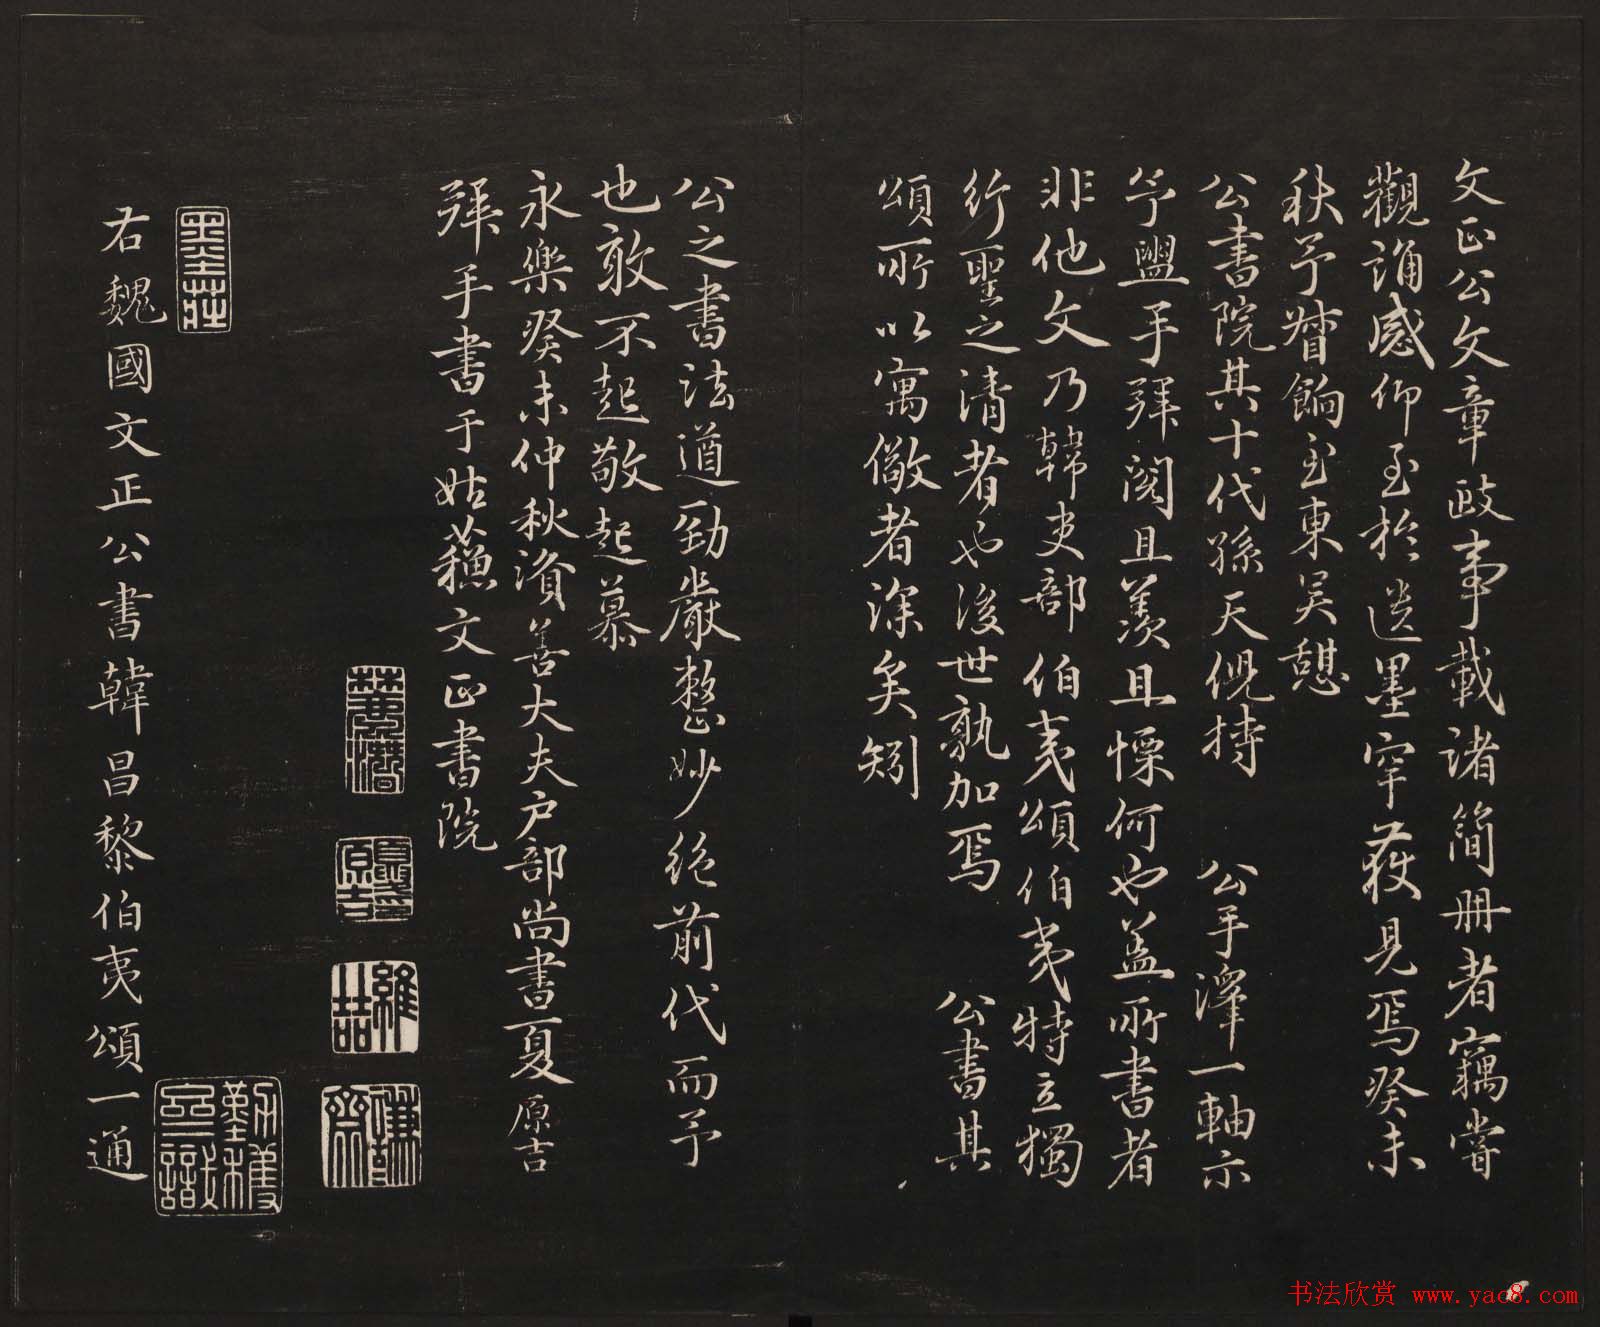 文正公文章政事載諸簡冊者竊嘗
觀誦感仰至於遺墨罕獲見焉癸未
秋予督餉至東吳憩
公書院其十代孫天倪持 公手澤一軸示
予盥手拜閱且羨且慄何也蓋所書者
非他文乃韓吏部伯夷頌伯夷特立獨
行聖之清者也後世孰加焉 公書其
頌所以寓儆者深矣矧
公之書法遒勁嚴整妙絕前代而予
也敢不起敬起慕
永樂癸未仲秋資善大夫戶部尚書夏原吉
拜手書于姑蘇文正書院
夏原吉印
維喆
謙齋
墨莊
右魏國文正公書韓昌黎伯夷頌一通
书法欣赏 www.yac8.com